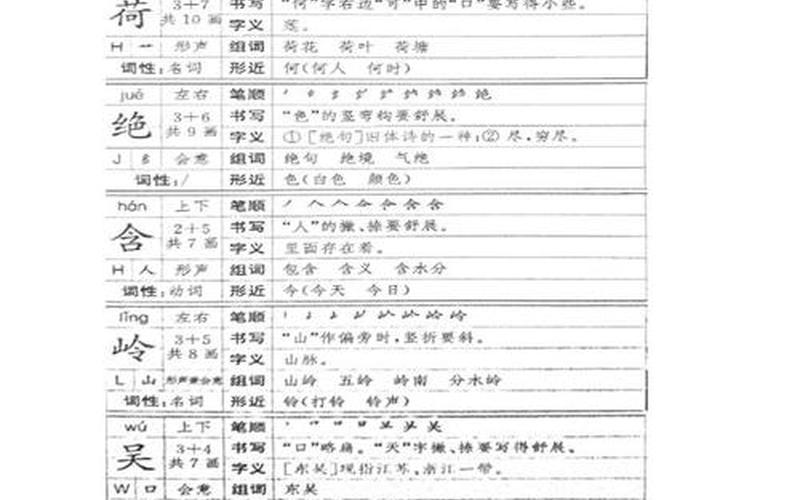 荷 3+7 书写 “何”字右边“可”中的“口”要写得小些。
共 10 画 字义 莲。
H 艹 形声 组词 荷花 荷叶 荷塘
词性：名词 形近 何(何人 何时)
jué 左右 笔顺
绝 3+6 书写 “色”的竖弯钩要舒展。
共 9 画 字义 ①[绝句]旧体诗的一种；②尽，穷尽。
J 纟 会意 组词 绝句 绝境 气绝
词性：/ 形近 色(白色 颜色)
hán 上下 笔顺
含 2+5 书写 “人”的撇、捺要舒展。
共 7 画 字义 里面存在着。
H 人 形声 组词 包含 含义 含水分
词性：动词 形近 今(今天 今日)
lǐng 左右 笔顺
岭 3+5 书写 “山”作偏旁时，竖折要斜。
共 8 画 字义 山脉。
L 山 形声兼会意 组词 山岭 五岭 岭南 分水岭
词性：名词 形近 铃(打铃 铃声)
wú 上下 笔顺
吴 3+4 书写 “口”略扁。“天”字撇、捺要写得舒展。
共 7 画 字义 [东吴]现指江苏、浙江一带。
W 口 会意 组词 东吴